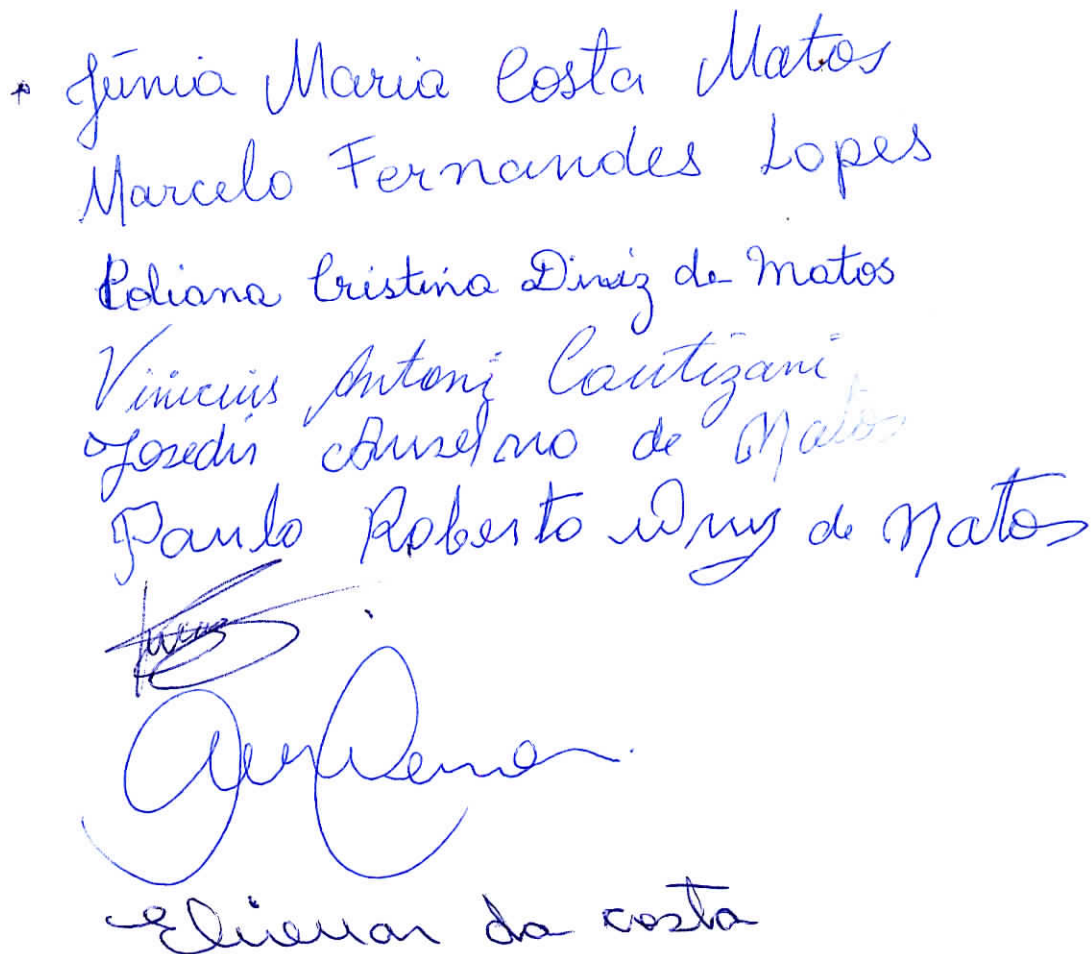 Júnia Maria Costa Matos
Marcelo Fernandes Lopes
Poliana Cristina Diniz de Matos
Vinicius Antoni Cautizani
Josedir Anselmo de Matos
Paulo Roberto de Matos
da costa